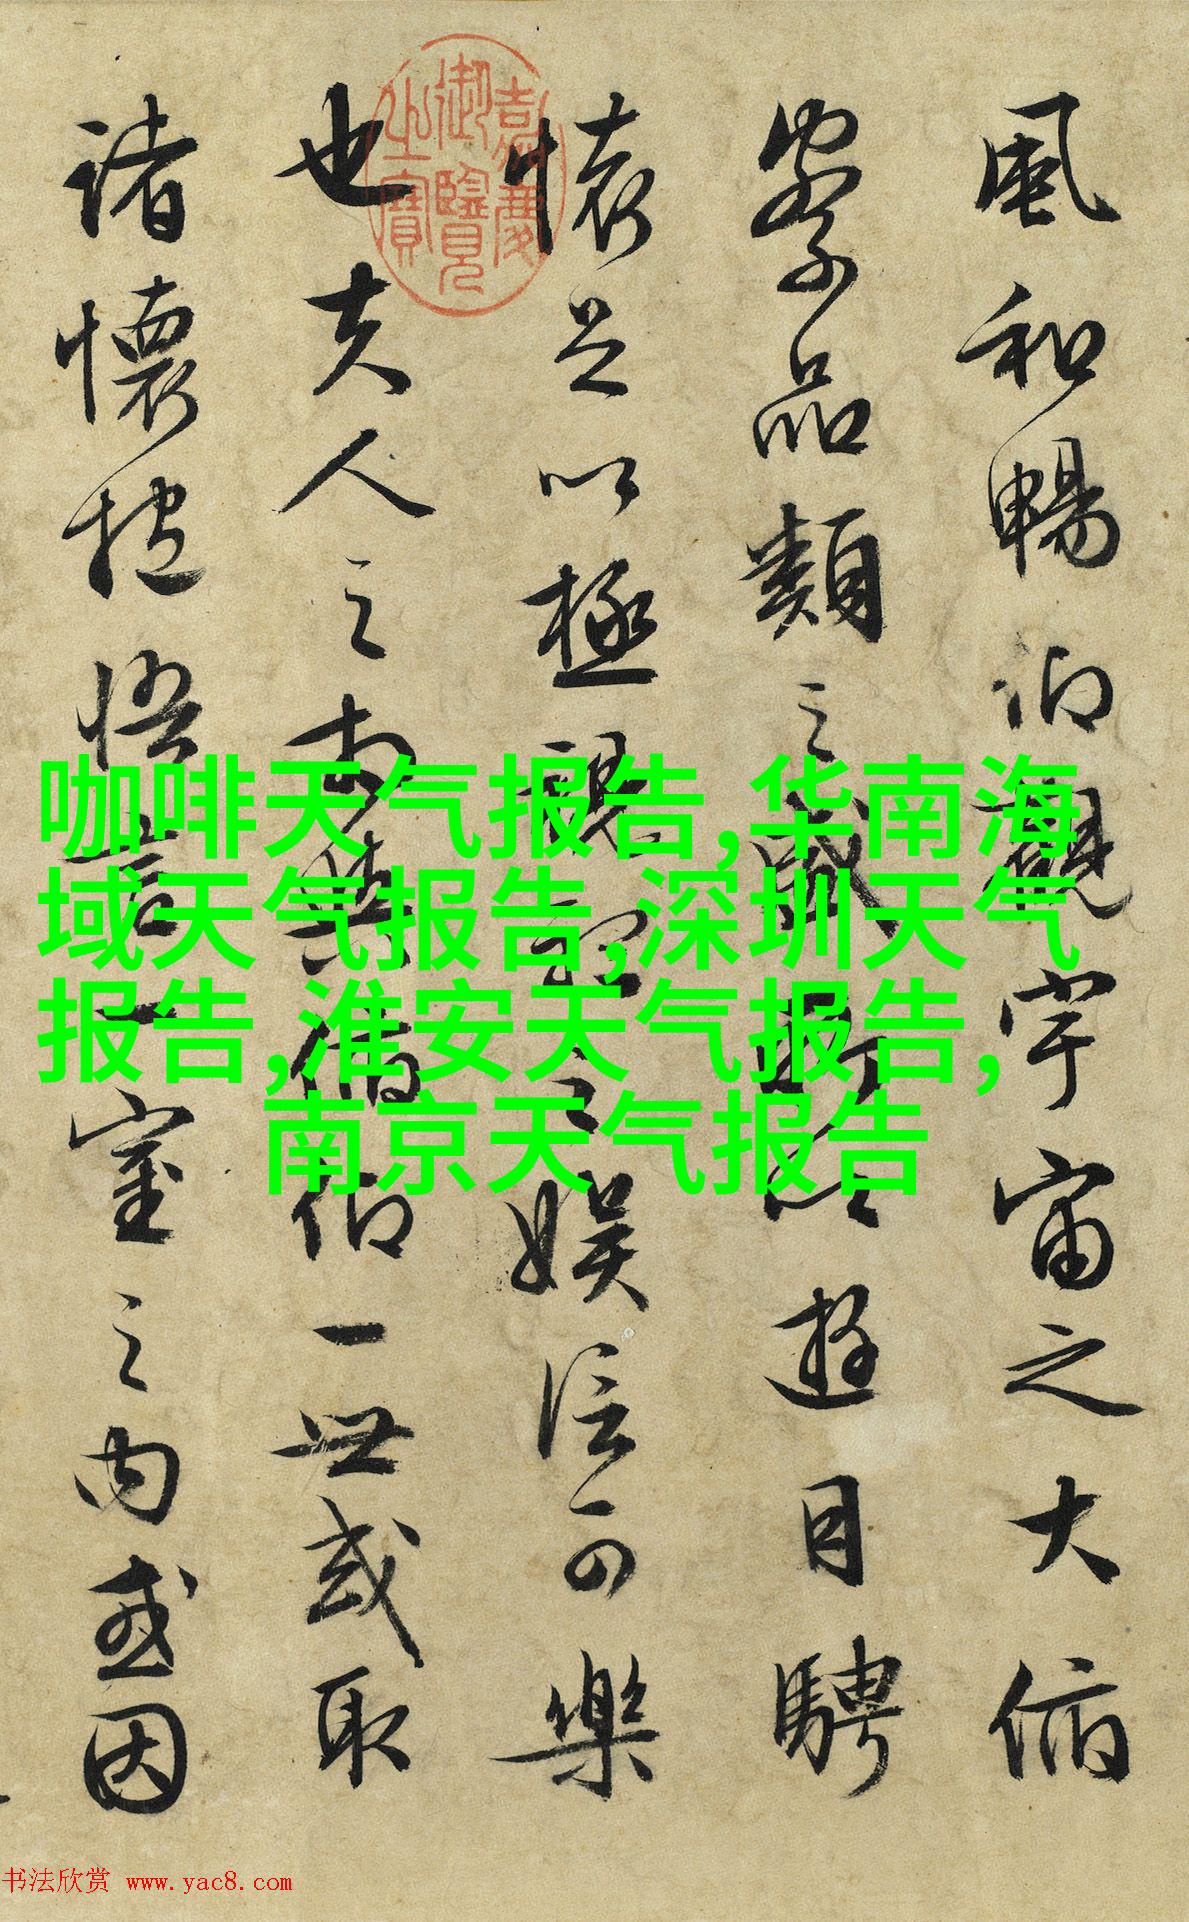 風和暢仰觀宇宙之大俯
察品類之盛所以遊目騁
懷足以極視聽之娛信可樂
也夫人之相與俯仰一世或取
諸懷抱悟言一室之內或因
嘉慶
御覽
之寶
咖啡天气报告,华南海
域天气报告,深圳天气
报告,淮安天气报告,
南京天气报告
书法欣赏 www.yac8.com